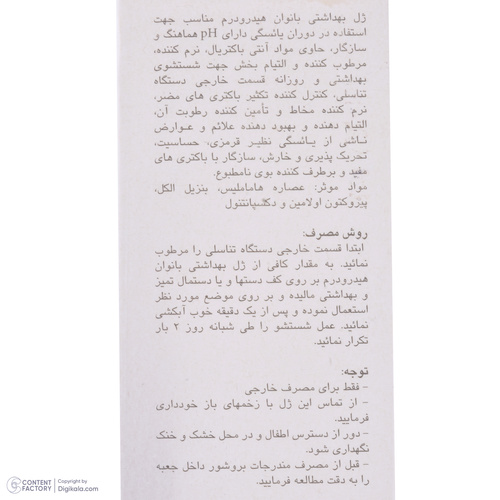 ژل بهداشتی بانوان هیدرودرم مناسب جهت
استفاده در دوران یائسگی دارای pH هماهنگ و
سازگار، حاوی مواد آنتی باکتریال، نرم کننده،
مرطوب کننده و التیام بخش جهت شستشوی
بهداشتی و روزانه قسمت خارجی دستگاه
تناسلی، کنترل کننده تکثیر باکتری های مضر،
نرم کننده مخاط و تأمین کننده رطوبت آن،
التیام دهنده و بهبود دهنده علائم و عوارض
ناشی از یائسگی نظیر قرمزی، حساسیت،
تحریک پذیری و خارش، سازگار با باکتری های
مفید و برطرف کننده بوی نامطبوع.
مواد موثر: عصاره هاماملیس، بنزیل الکل،
پیروکتون اولامین و دکسپانتنول
روش مصرف:
ابتدا قسمت خارجی دستگاه تناسلی را مرطوب
نمائید. به مقدار کافی از ژل بهداشتی بانوان
هیدرودرم بر روی کف دستها و یا دستمال تمیز
و بهداشتی مالیده و بر روی موضع مورد نظر
استعمال نموده و پس از یک دقیقه خوب آبکشی
نمائید. عمل شستشو را طی شبانه روز ۲ بار
تکرار نمائید.
توجه:
– فقط برای مصرف خارجی
– از تماس این ژل با زخمهای باز خودداری
فرمایید.
– دور از دسترس اطفال و در محل خشک و خنک
نگهداری شود.
– قبل از مصرف مندرجات بروشور داخل جعبه
را به دقت مطالعه فرمایید.
CONTENT
FACTORY
Digikala.com